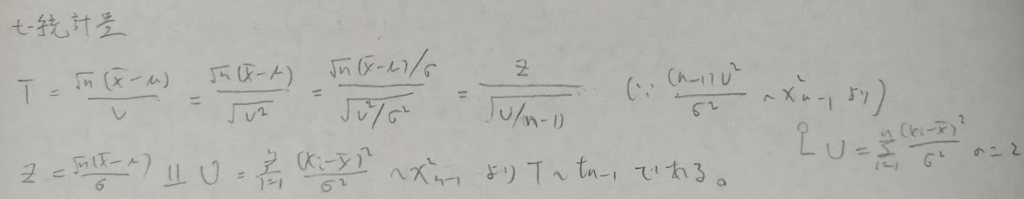 t-統計量
T = √n(x̄-μ)/V = √n(x̄-μ)/√V² = √n(x̄-μ)/σ / √V²/σ² = Z/√U/(n-1) (∵ (n-1)V²/σ² ~ χ²n-1 より)
U = Σ_{i=1}^{n} (xi-x̄)²/σ²
Z = √n(x̄-μ)/σ ⫫ U = Σ_{i=1}^{n} (xi-x̄)²/σ² ~ χ²n-1 より T ~ tn-1 である。